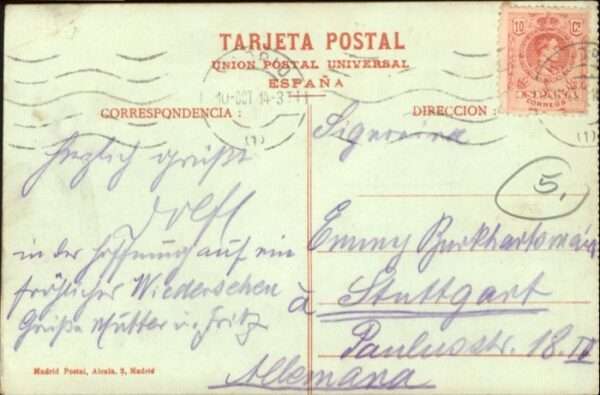 TARJETA POSTAL
UNION POSTAL UNIVERSAL
ESPAÑA
10 Cs
ESPAÑA
CORREOS
10-OCT 14-3T
(1)
(1)
CORRESPONDENCIA :
DIRECCION :
Herzlich grüßt
Dolff
in der Hoffnung auf ein
fröhliches Wiedersehen
Grüße Mutter u. Fritz
Madrid Postal, Alcala, 2, Madrid
5.
Emmy
à Stuttgart
Paulusstr. 18 III
Allemana